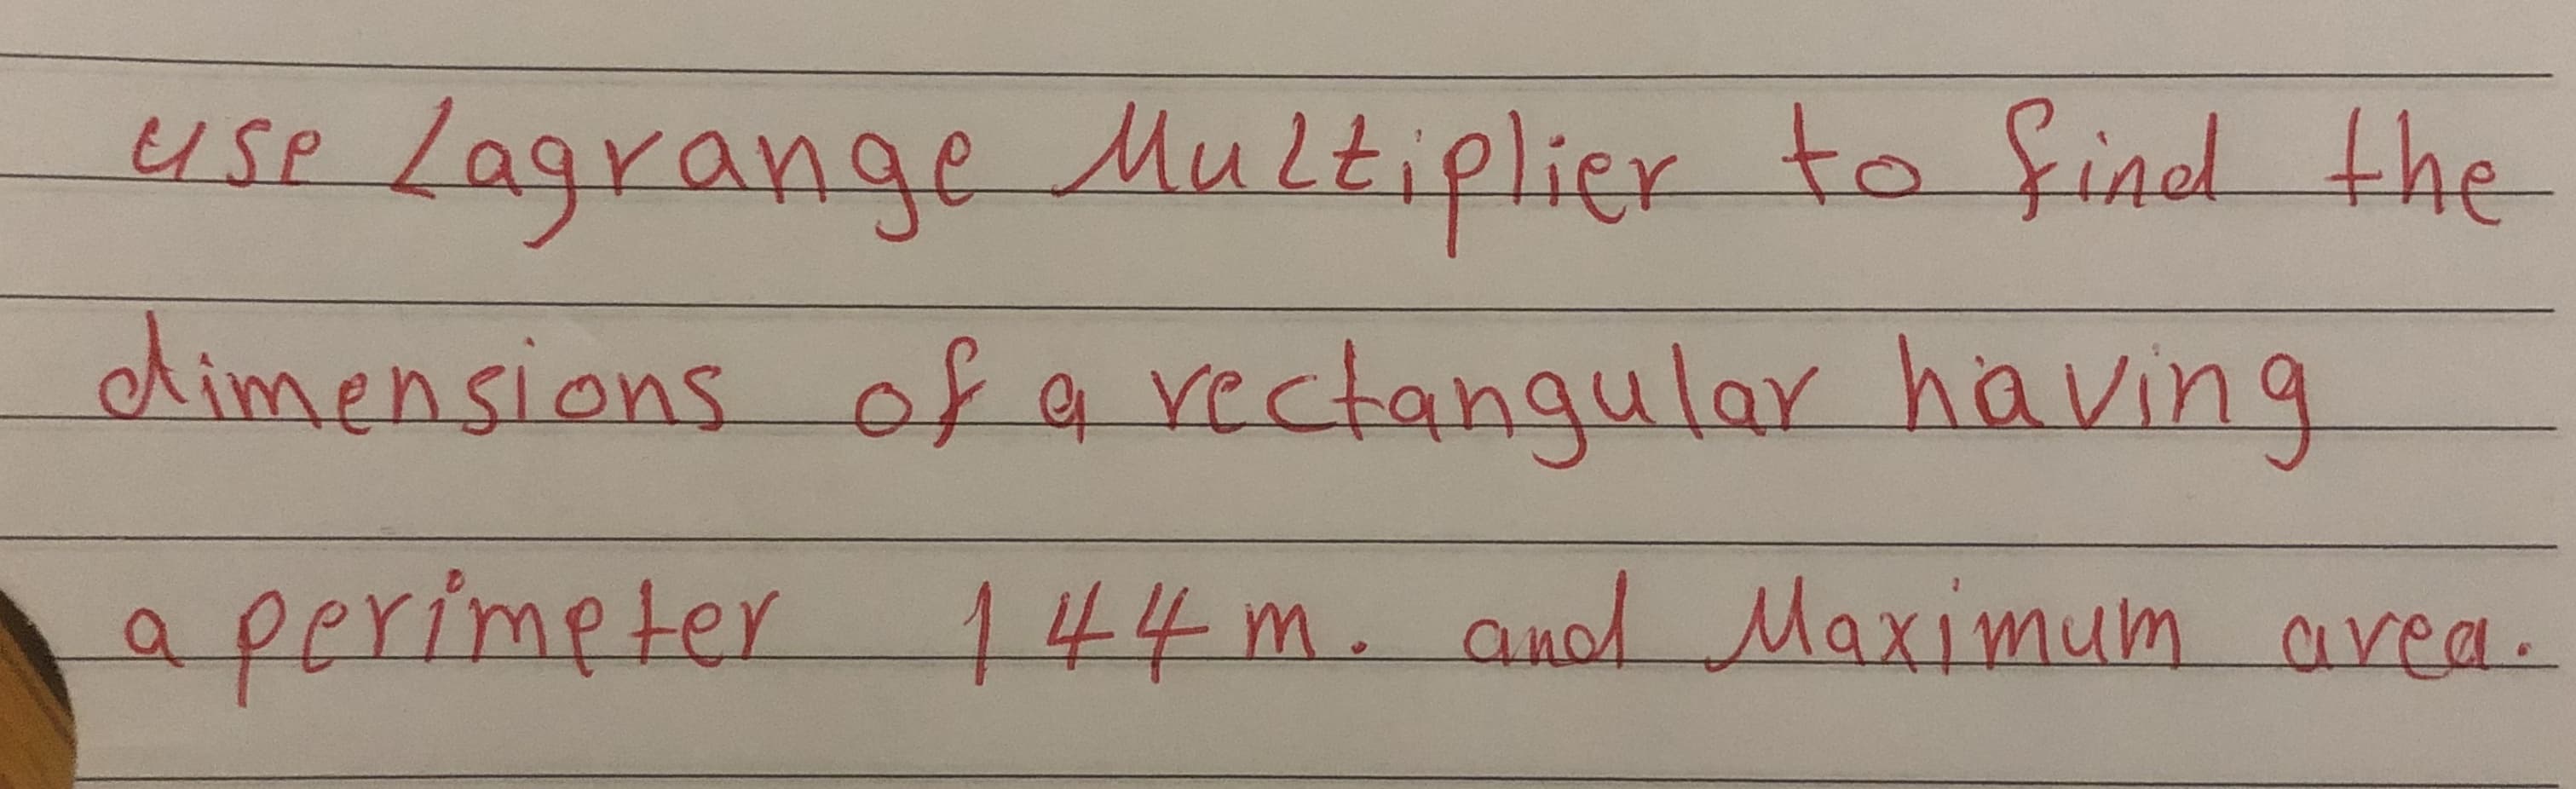 use Lagrange Multiplier to find the
dimensions of a rectangular having
a perimeter 144 m. and Maximum area.